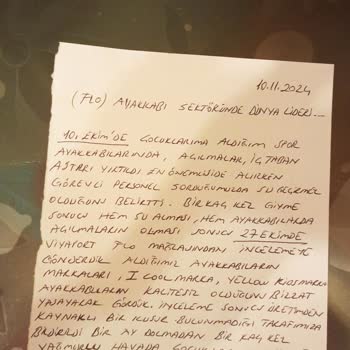 10.11.2024
(FLO) AYAKKABI SEKTÖRÜNDE DÜNYA LİDERİ...
10. EKİM'DE ÇOCUKLARIMA ALDIĞIM SPOR
AYAKKABILARINDA, AÇILMALAR, İÇ TABAN
ASTARI YIRTILDI. EN ÖNEMLİSİDE ALIRKEN
GÖREVLİ PERSONEL SORDUĞUMUZDA SU GEÇİRMEZ
OLDUĞUNU BELİRTTİ. BİR KAÇ KEZ GİYME
SONUCU HEM SU ALMASI, HEM AYAKKABILARDA
AÇILMALARIN OLMASI SONUCU 27 EKİMDE
VİYAPORT FLO MAĞAZASINDAN İNCELEMEYE
GÖNDERDİK ALDIĞIMIZ AYAKKABILARIN
MARKALARI, I COOL MARKA, YELLOW KIDS MARKA
AYAKKABILARIN KALİTESİZ OLDUĞUNU BİZZAT
YAŞAYARAK GÖRDÜK. İNCELEME SONUCU ÜRETİMDEN
KAYNAKLI BİR KUSUR BULUNMADIĞI TARAFIMIZA
BİLDİRİLDİ BİR AY DOLMADAN BİR KAÇ KEZ
YAĞMURLU HAVADA